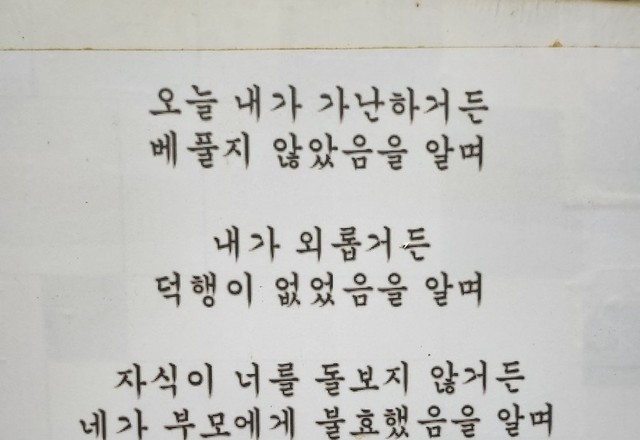 오늘 내가 가난하거든
베풀지 않았음을 알며
내가 외롭거든
덕행이 없었음을 알며
자식이 너를 돌보지 않거든
네가 부모에게 불효했음을 알며